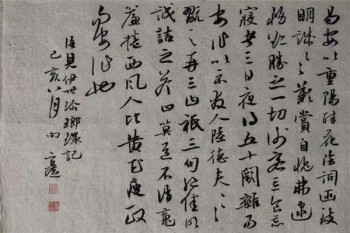 易安以重陽醉花陰詞函致
明誠々歎賞自愧弗逮
務欲勝之一切謝客忌食忘
寢者三日夜得五十闋雜易
安作以示友人陸德夫々々
翫之再三曰祇三句絕佳明
誠詰之答曰莫道不消魂
簾捲西風人比黃花瘦政
易安作也
語見伊世珍瑯嬛記
己亥八月